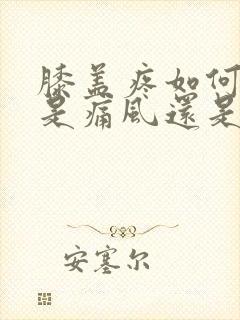 膝盖疼如何
是痛风還是
安塞尔